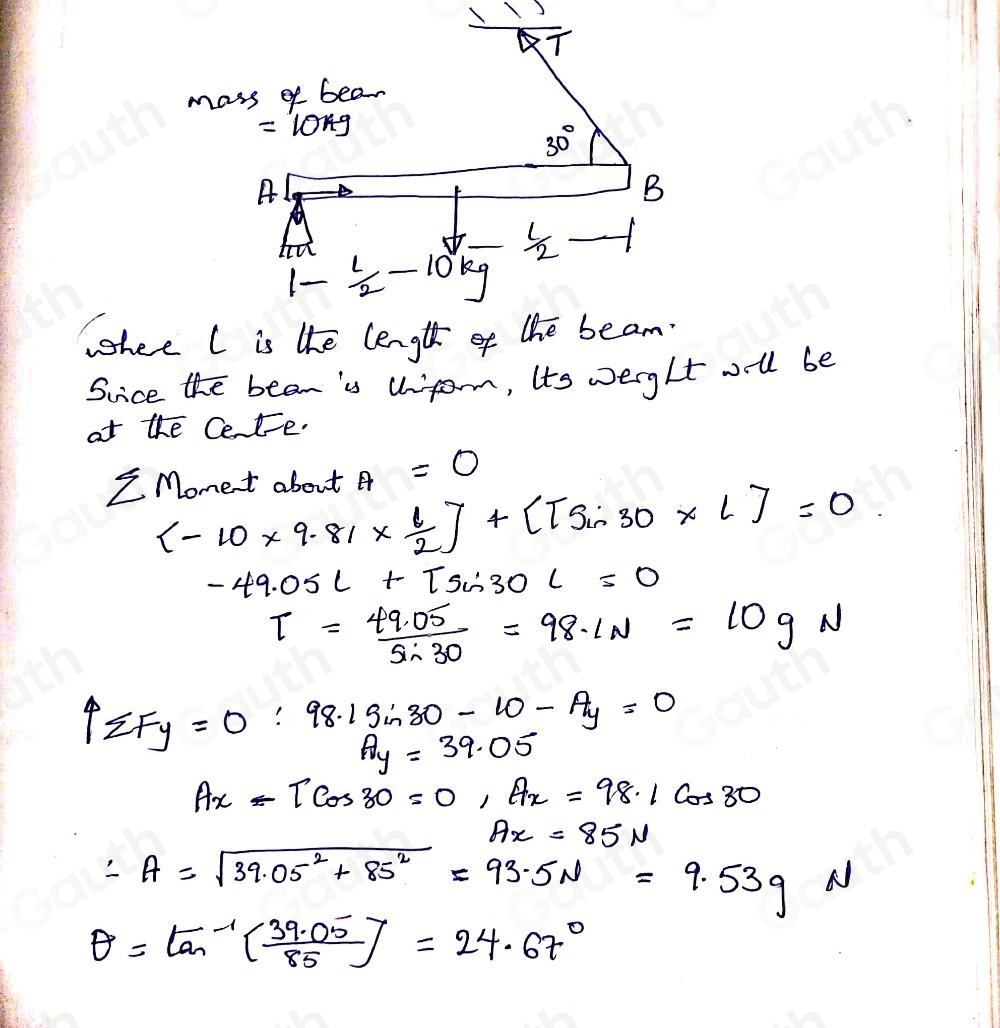 T
mass of beam
= 10kg
30°
A
B
L/2
L/2
10kg
where L is the length of the beam.
Since the beam is Uniform, Its weight will be
at the Centre.
Σ Moment about A = 0
(-10 × 9.81 × L/2] + [T Sin 30 × L] = 0
-49.05 L + T Sin 30 L = 0
T = 49.05/Sin 30 = 98.1N = 10g N
↑ΣFy = 0 : 98.1 Sin 30 - 10 - Ay = 0
Ay = 39.05
Ax - T Cos 30 = 0, Ax = 98.1 Cos 30
Ax = 85 N
∴ A = √39.05² + 85² = 93.5N = 9.53g N
θ = tan⁻¹ [39.05/85] = 24.67°